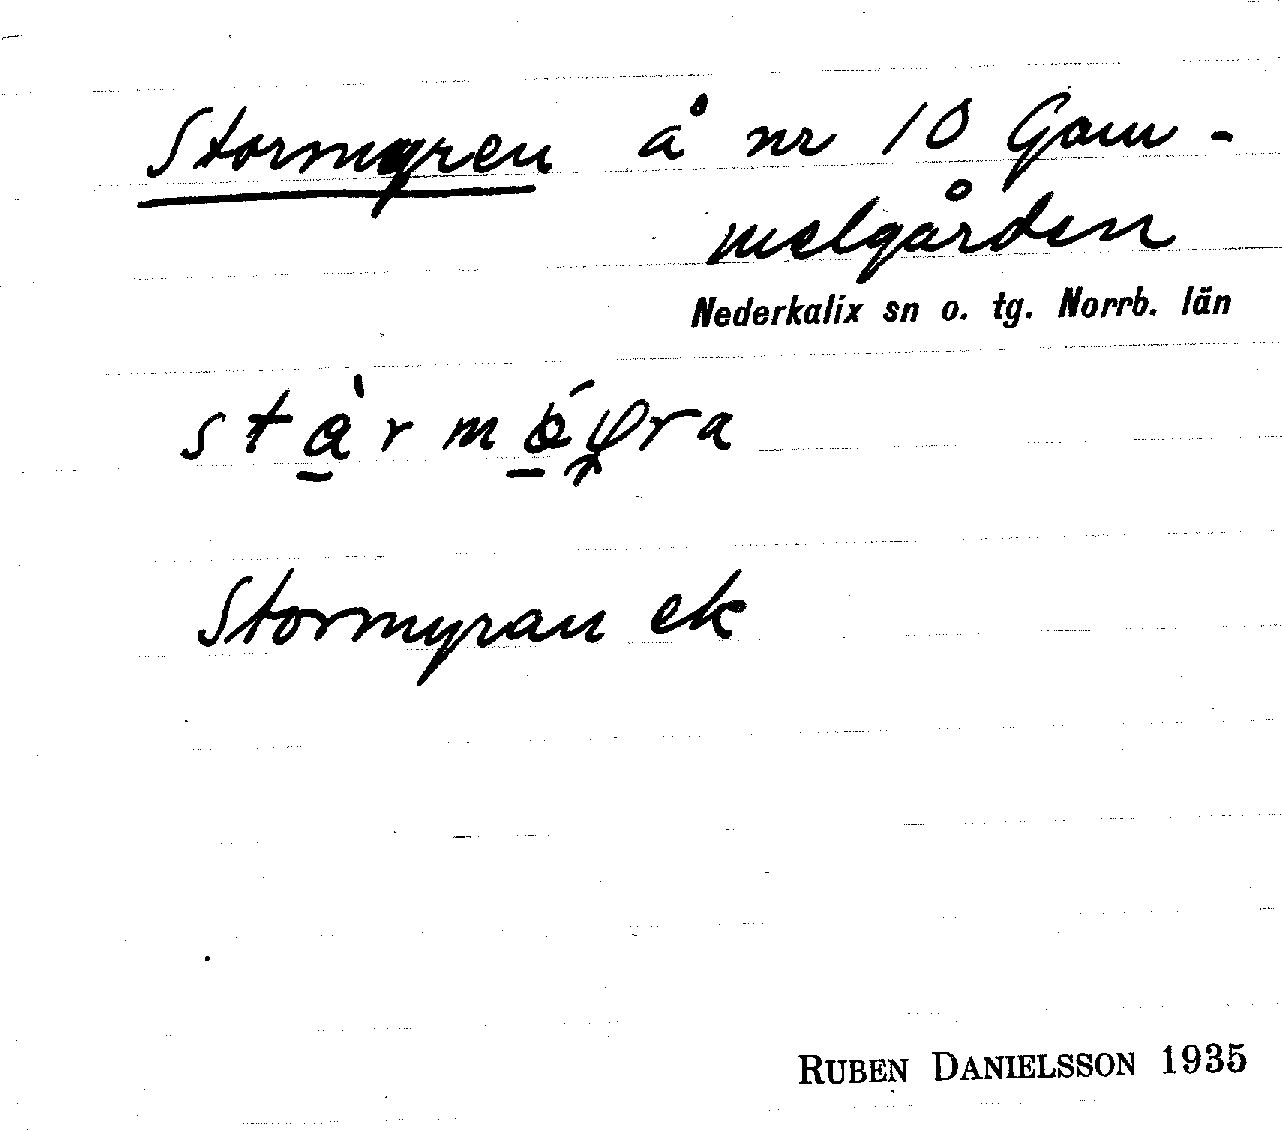 Stormyren å nr 10 Gam-
melgården
Nederkalix sn o. tg. Norrb. län
Stormyran ek
RUBEN DANIELSSON 1935